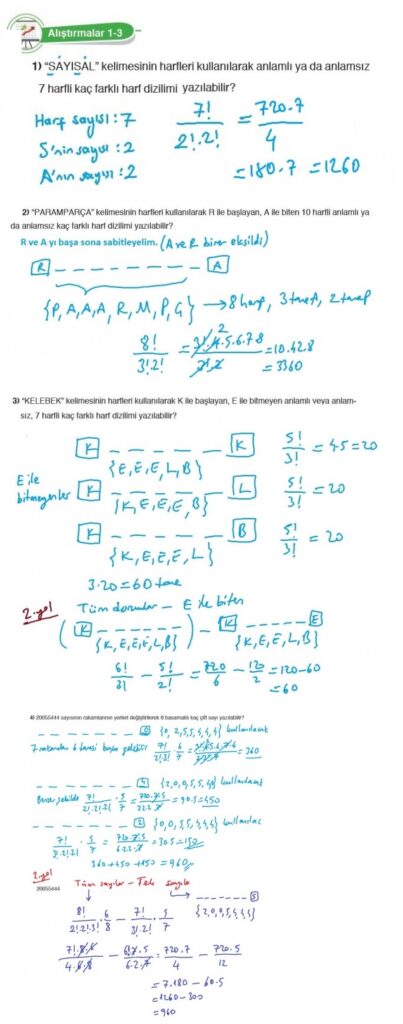 Alıştırmalar 1-3
1) "SAYISAL" kelimesinin harfleri kullanılarak anlamlı ya da anlamsız
7 harfli kaç farklı harf dizilimi yazılabilir?
Harf sayısı : 7
S'nin sayısı : 2
A'nın sayısı : 2
7!/2!.2! = 720.7/4
=180.7 =1260
2) "PARAMPARÇA" kelimesinin harfleri kullanılarak R ile başlayan, A ile biten 10 harfli anlamlı ya
da anlamsız kaç farklı harf dizilimi yazılabilir?
R ve A yı başa sona sabitleyelim. (A ve R birer eksildi)
R _ _ _ _ _ _ _ _ A
{P, A, A, A, R, M, P, Ç} → 8 harf, 3 tane A, 2 tane P
8!/3!2! = 3!.4.5.6.7.8/3!.2 = 10.42.8
= 3360
3) "KELEBEK" kelimesinin harfleri kullanılarak K ile başlayan, E ile bitmeyen anlamlı veya anlam-
sız, 7 harfli kaç farklı harf dizilimi yazılabilir?
E ile bitmeyenler
K _ _ _ _ _ K 5!/3! = 4.5=20
{E, E, E, L, B}
K _ _ _ _ _ L 5!/3! = 20
{K, E, E, E, B}
K _ _ _ _ _ B 5!/3! = 20
{K, E, E, E, L}
3.20=60 tane
2.yol Tüm durumlar – E ile biten
(K _ _ _ _ _ _) – K _ _ _ _ _ E
{K, E, E, E, L, B} {K, E, E, L, B}
6!/3! – 5!/2! = 720/6 – 120/2 = 120-60
=60
4) 20055444 sayısının rakamlarının yerleri değiştirilerek 8 basamaklı kaç çift sayı yazılabilir?
_ _ _ _ _ _ _ 0 {0, 2, 5, 5, 4, 4, 4} kullanılacak
7 rakamdan 6 tanesi başa gelebilir 7!/2!.3! . 6/7 = 360
_ _ _ _ _ _ _ 4 {2, 0, 0, 5, 5, 4, 4} kullanılacak
7!/2!.2!.2! . 5/7 = 720.7.5 = 90.5=450
_ _ _ _ _ _ _ 2 {0, 0, 5, 5, 4, 4, 4} kullanılac
7!/3!.2!.2! . 5/7 = 720.7.5/6.2.2.7 = 30.5=150
360+450+150=960
2.yol
20055444
Tüm sayılar – Tek sayılar
_ _ _ _ _ _ _ 5
8!/2!.2!.3! . 6/8 – 7!/3!.2! . 5/7 {2, 0, 0, 5, 4, 4, 4}
7!.8.6/4.6.8 – 6!.7.5/6.2.7 = 720.7/4 – 720.5/12
=7.180 – 60.5
=1260-300
=960